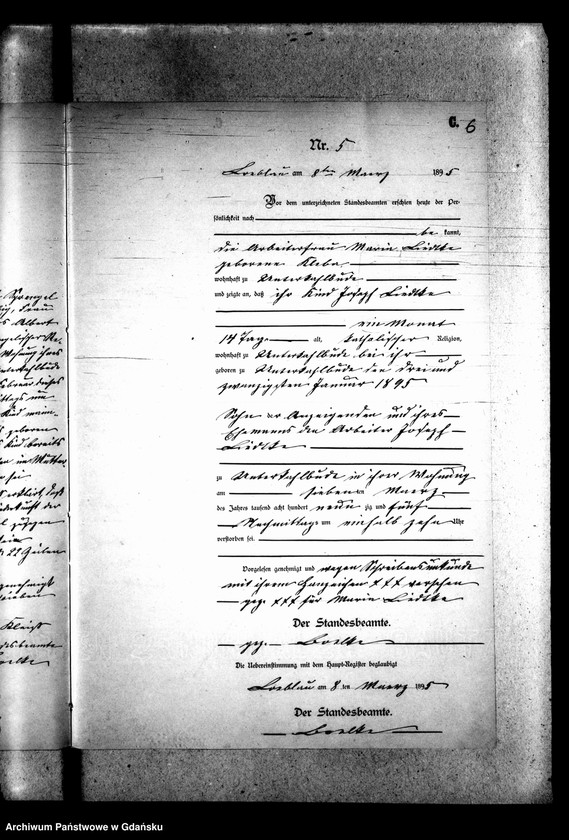 C.
6
Nr. 5
Loeblau am 8ten Maerz 1895
Vor dem unterzeichneten Standesbeamten erschien heute der Per-
sönlichkeit nach
be kannt,
die Arbeiterfrau Maria Liedtke
geborene Klebe
wohnhaft zu Unterkahlbude
und zeigte an, daß ihr Kind Joseph Liedtke
ein Monat
14 Tage alt, katholischer Religion,
wohnhaft zu Unterkahlbude bei ihr
geboren zu Unterkahlbude den drei und
zwanzigsten Januar 1895
Sohn der Anzeigenden und ihres
Ehemannes des Arbeiter Joseph
Liedtke
zu Unterkahlbude in ihrer Wohnung
am sieben ten Maerz
des Jahres tausend acht hundert neun zig und fünf
Nachmittags um ein halb zehn Uhr
verstorben sei.
Vorgelesen genehmigt und wegen Schreibensunkunde
mit ihrem Handzeichen +++ versehen
gez. +++ für Maria Liedtke
Der Standesbeamte.
gez. Boelke
Die Uebereinstimmung mit dem Haupt-Register beglaubigt
Loeblau am 8 ten Maerz 1895
Der Standesbeamte.
Boelke
Archiwum Państwowe w Gdańsku